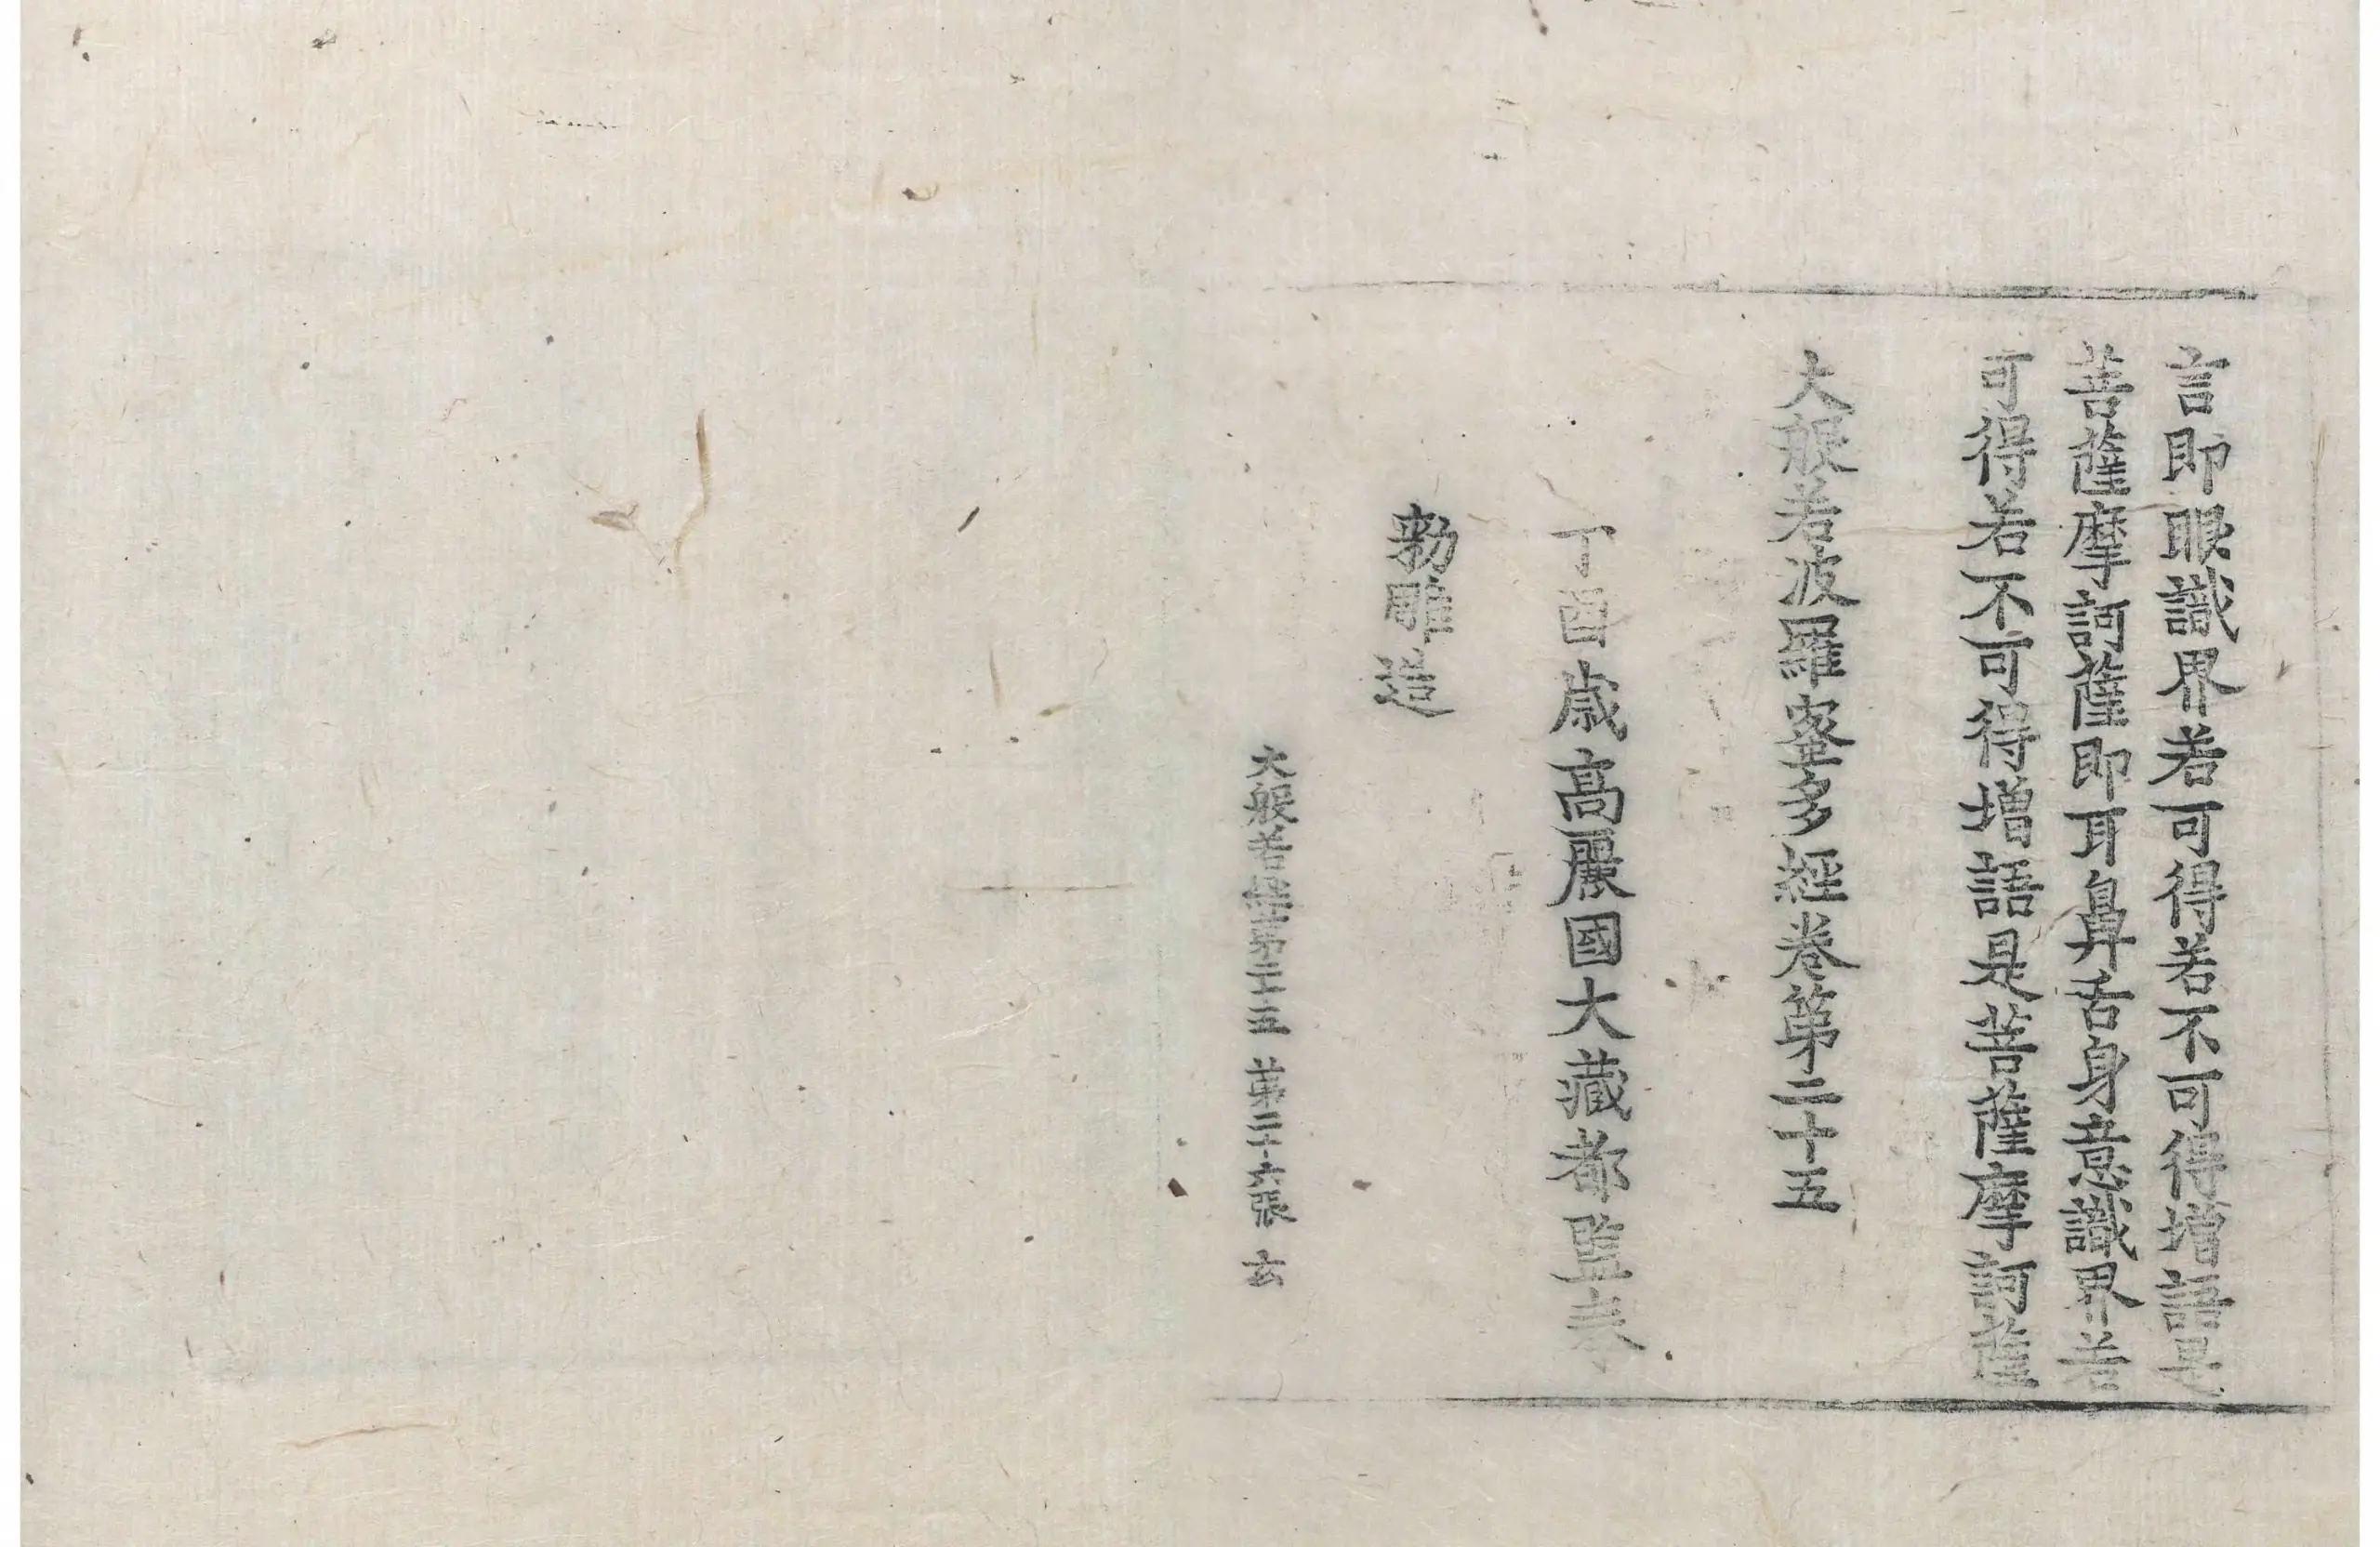 言即眼識界若可得若不可得增語是
菩薩摩訶薩即耳鼻舌身意識界若
可得若不可得增語是菩薩摩訶薩
大般若波羅蜜多經卷第二十五
丁酉歲高麗國大藏都監奉
勑雕造
大般若經第二十五 第二十六張 玄